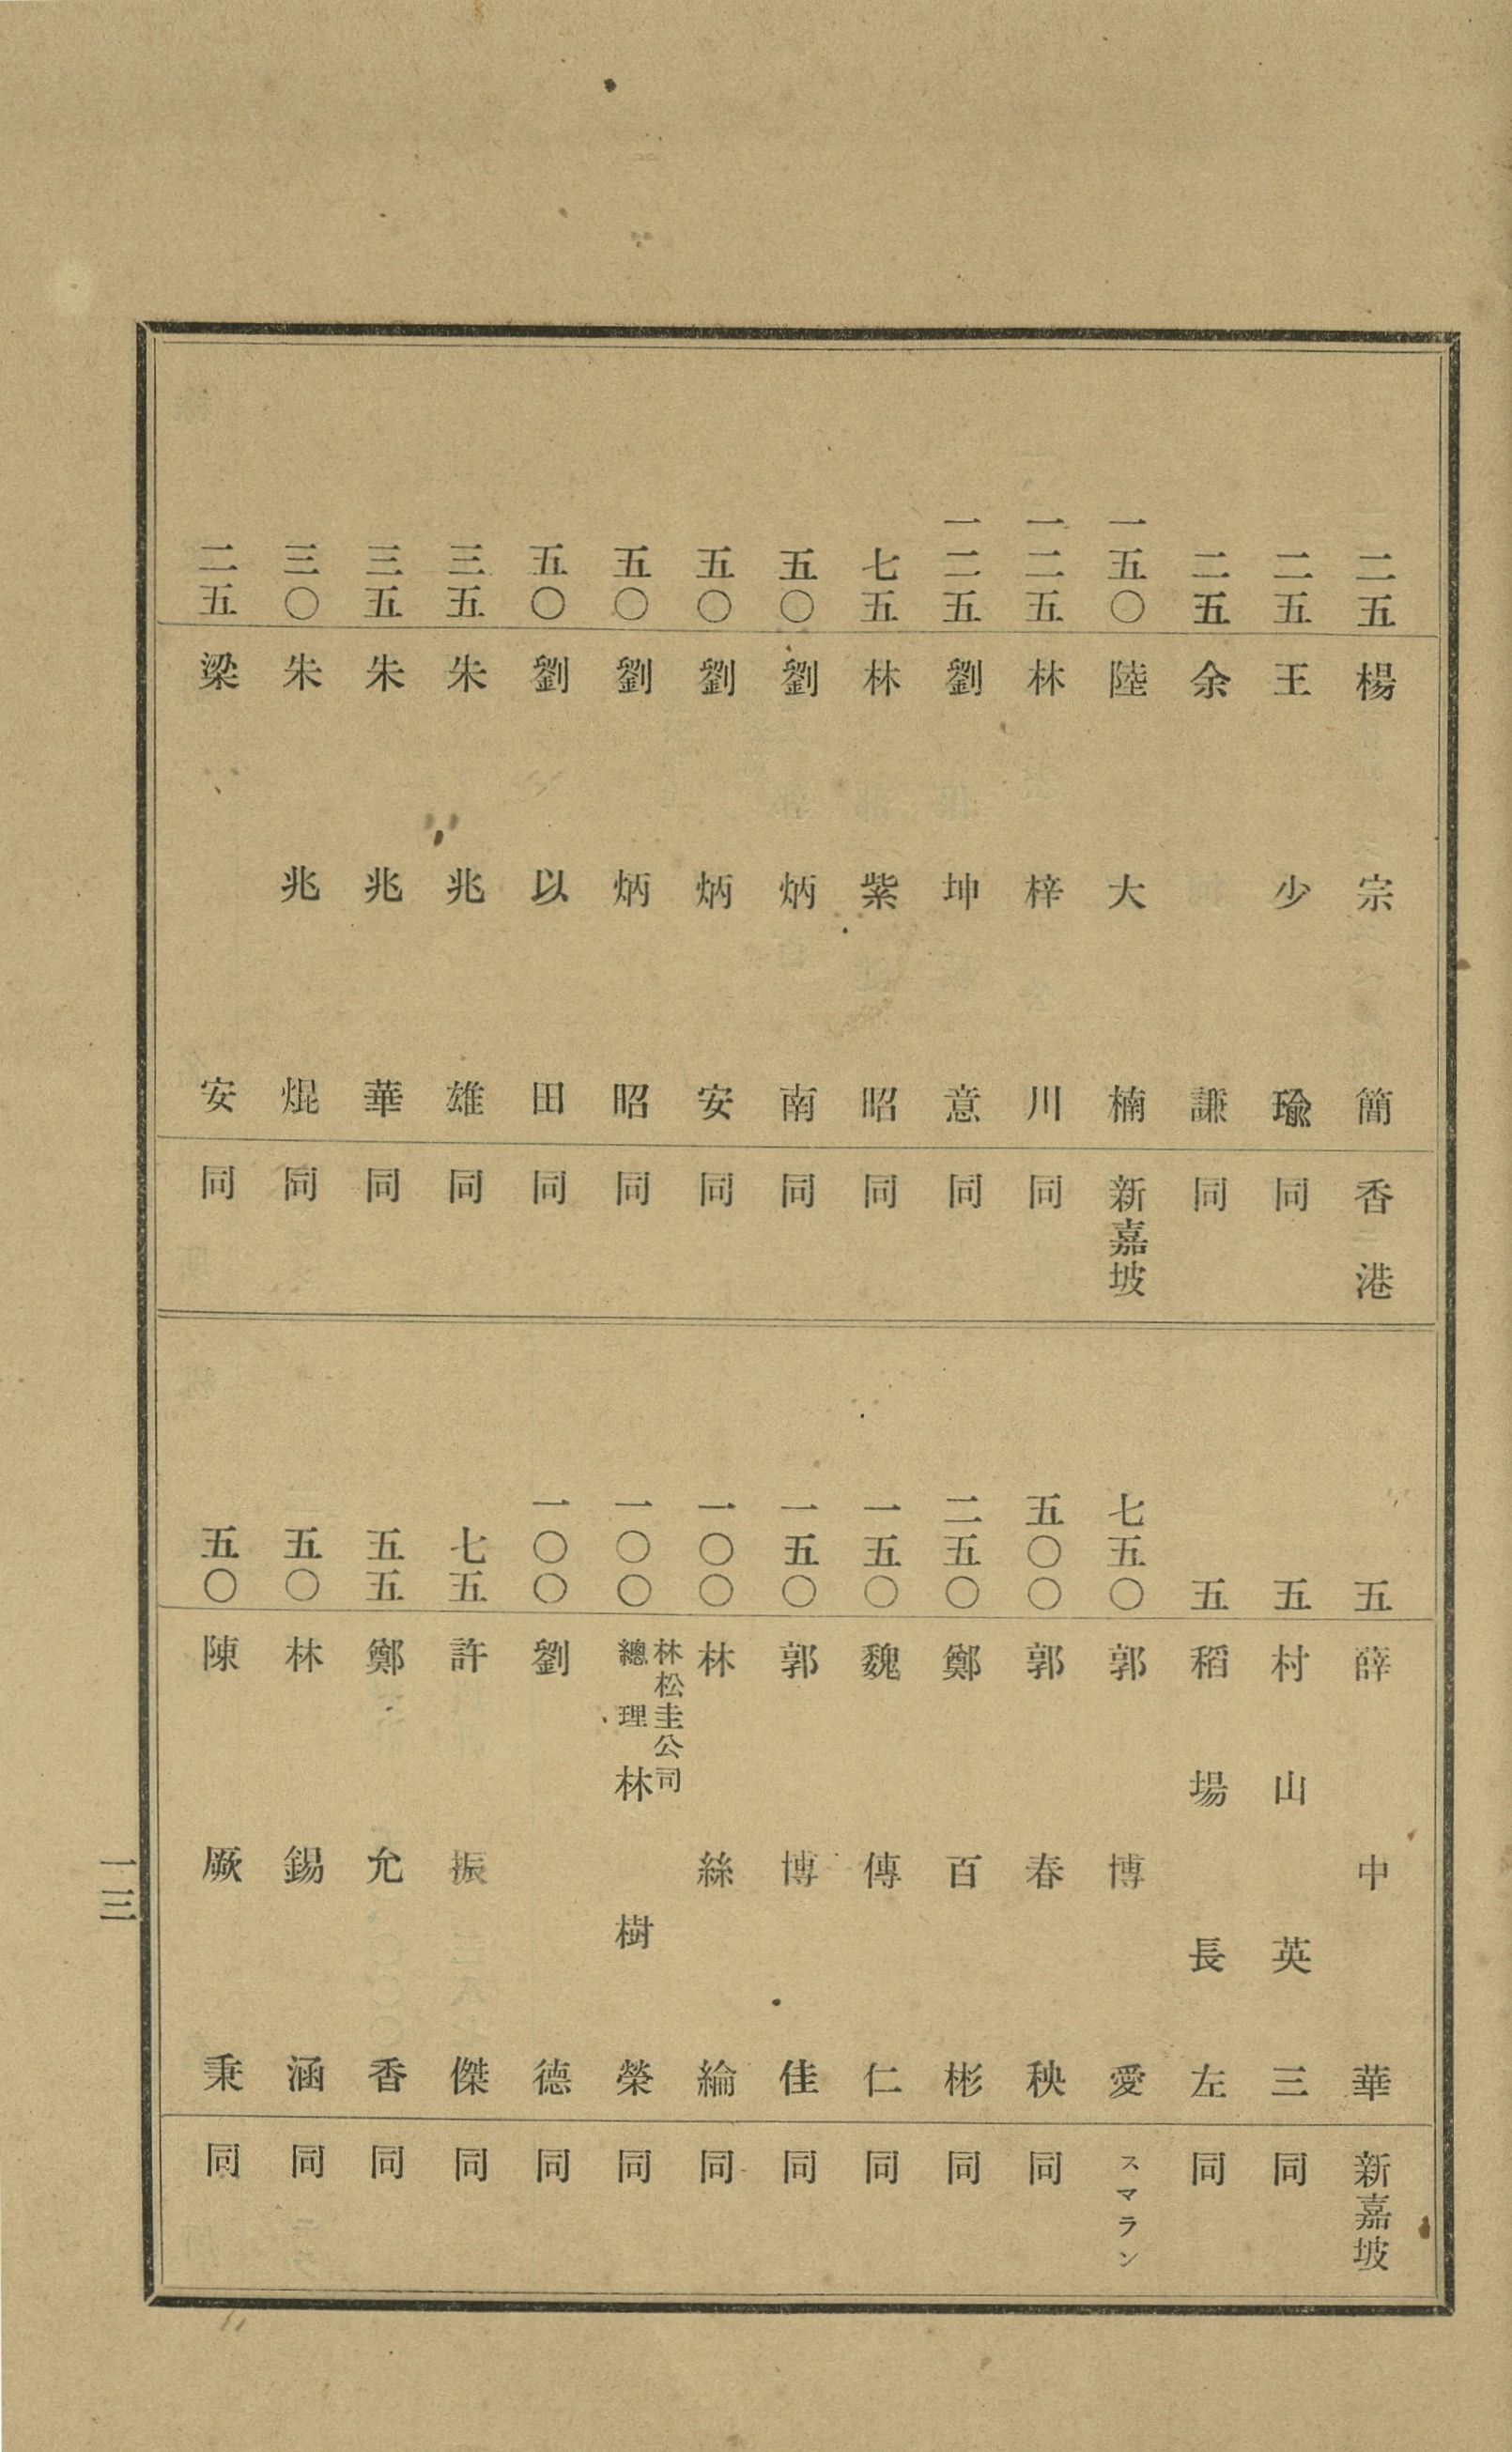 二五 楊宗簡 香港
二五 王少瑜 同
二五 余謙 同
一五〇 陸大楠 新嘉坡
一二五 林梓川 同
一二五 劉坤意 同
七五 林紫昭 同
五〇 劉炳南 同
五〇 劉炳安 同
五〇 劉炳昭 同
五〇 劉以田 同
三五 朱兆雄 同
三五 朱兆華 同
三〇 朱兆焜 同
二五 梁安 同
五 薛中華 新嘉坡
五 村山英三 同
五 稻場長左 同
七五〇 郭博愛 スマラン
五〇〇 郭春秧 同
二五〇 鄭百彬 同
一五〇 魏傳仁 同
一五〇 郭博佳 同
一〇〇 林絲綸 同
一〇〇 林松圭公司總理 林樹榮 同
一〇〇 劉德 同
七五 許振傑 同
五五 鄭允香 同
五〇 林錫涵 同
五〇 陳厥秉 同
一三